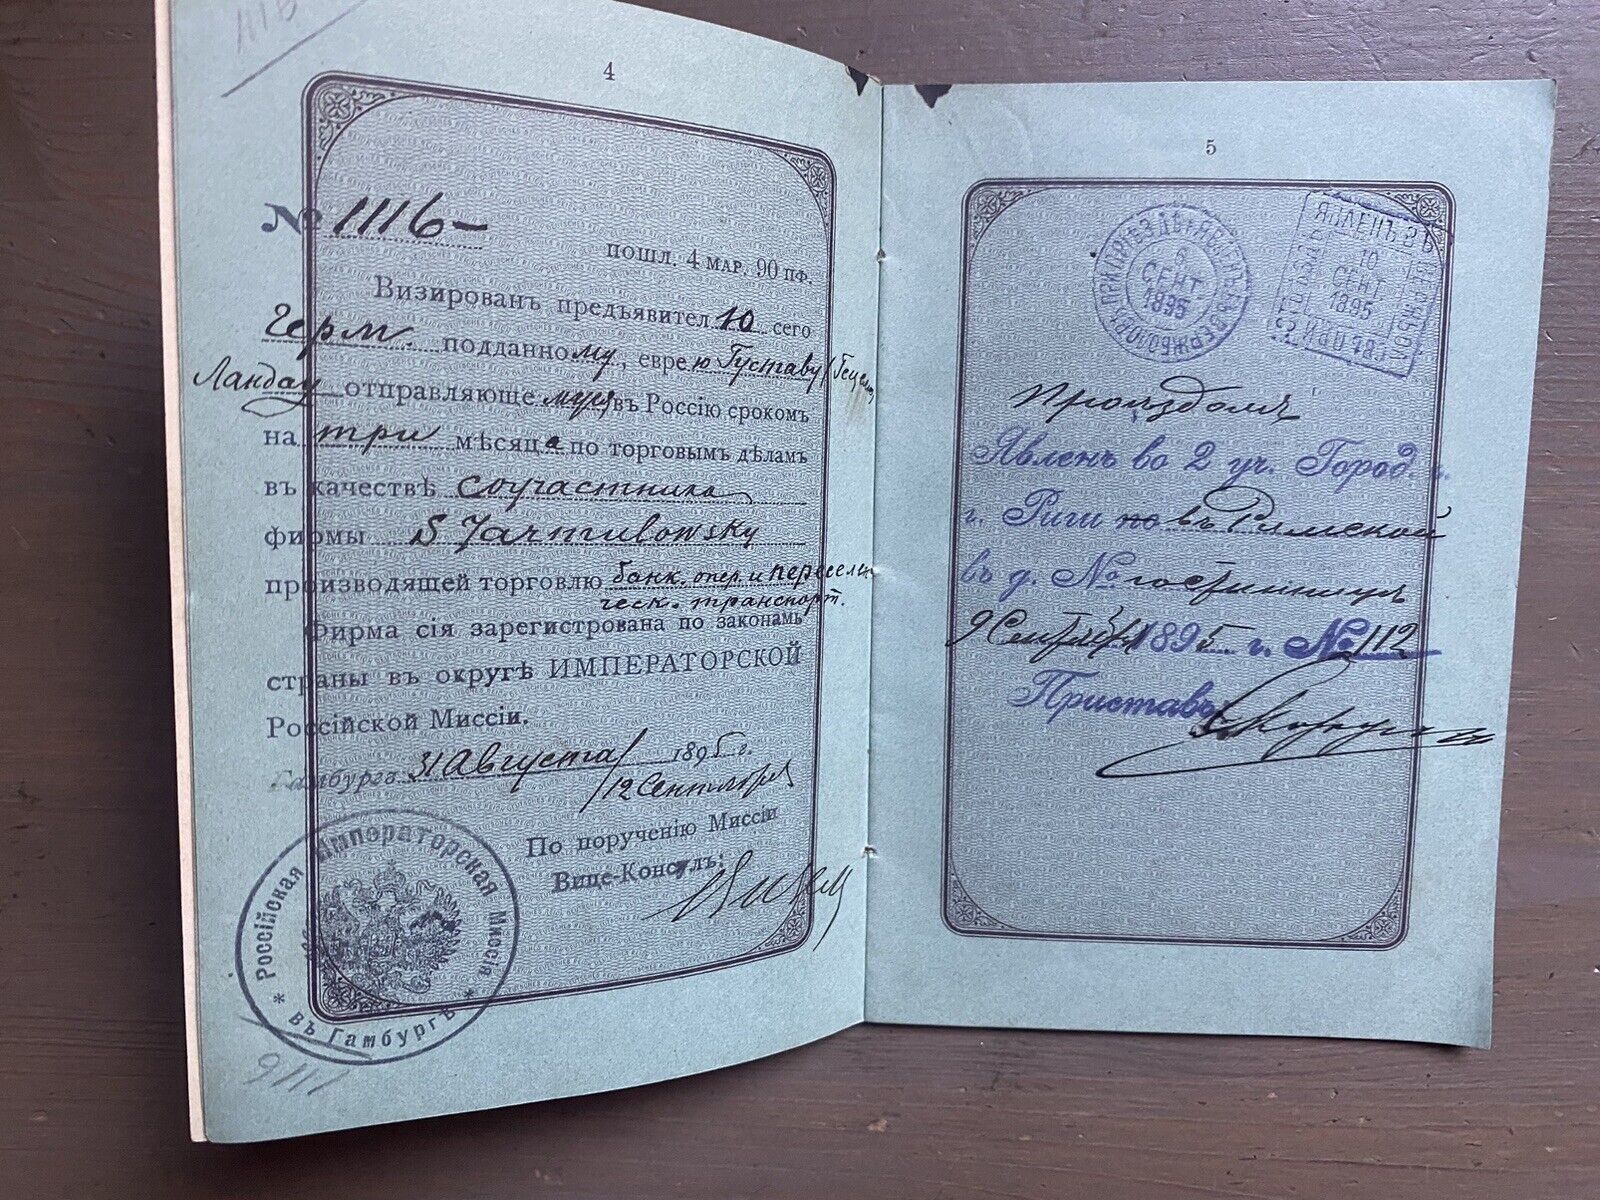 1116
4
№ 1116-
пошл. 4 мар. 90 пф.
Визированъ предъявителю сего
Герм. подданному, еврею Густаву (Гецелю)
Ландау отправляющемуся въ Россію срокомъ
на три мѣсяца по торговымъ дѣламъ
въ качествѣ соучастника
фирмы S Jarmulowsky
производящей торговлю банк. опер. и переселен
ческ. транспорт.
Фирма сія зарегистрована по законамъ
страны въ округѣ ИМПЕРАТОРСКОЙ
Россійской Миссіи.
Гамбургъ 31 Августа/12 Сентября 1895 г.
По порученію Миссіи
Вице-Консулъ:
Россійская Императорская Миссія
* въ Гамбургѣ *
1116
5
ПРИ ПРІѢЗДѢ ЯВЛЕНЪ ВЪ ВЕРЖБОЛОВѢ
СЕНТ.
1895
ЯВЛЕНЪ ВЪ
10
СЕНТ.
1895
Проѣздомъ
Явленъ во 2 уч. Город. ч.
г. Риги въ Римской
въ д. № гостинницѣ
9 Сентября 1895 г. № 112
Приставъ